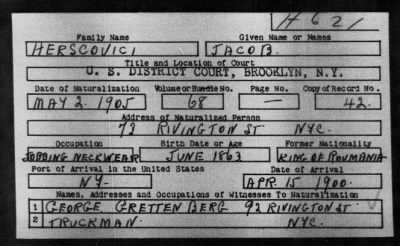 H 621
Family Name Given Name or Names
HERSCOVICI JACOB.
Title and Location of Court
U. S. DISTRICT COURT, BROOKLYN, N.Y.
Date of Naturalization Volume or Bundle No. Page No. Copy of Record No.
MAY 2. 1905 68 — 42.
Address of Naturalized Person
73 RIVINGTON ST NYC.
Occupation Birth Date or Age Former Nationality
JOBBING NECKWEAR JUNE 1863 KING OF ROUMANIA
Port of Arrival in the United States Date of Arrival
NY- APR. 15 1900.
Names, Addresses and Occupations of Witnesses To Naturalization
1 GEORGE GRETTENBERG 92 RIVINGTON ST.
2 TRUCKMAN. NYC.